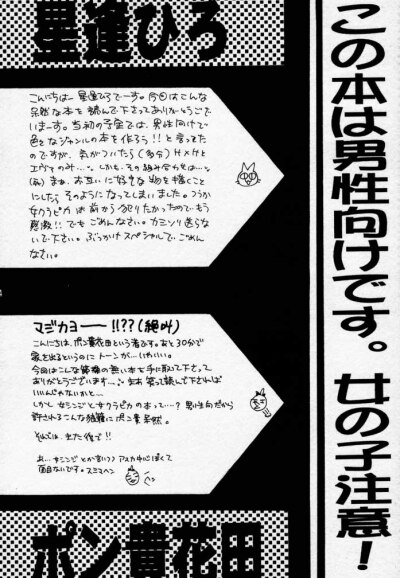 この本は男性向けです。女の子注意！
星逢ひろ
こんにちはー 星逢ひろでーす。今回はこんな
呆然な本を読んで下さってありがとうござ
いまーす。当初の予定では、男性向けで
色々なジャンルの本を作ろう!!と言ってた
のですが、気がついたら(多分)H×Hと
エヴァのみ…。しかも、その組み合わせは…。
(笑)まぁ、お互いに好きな物を描くこと
にしたら そのようになってしまいました。つうか
女クラピカは前から犯りたかったので もう
感激!! でも ごめんなさい。カミソリ送らな
いで下さい。ぶっかけスペシャルで、ごめん
なさい。
マジカヨーー!!??(絶叫)
こんにちは、ポン貴花田という者です。あと30分で
家を出るというのに トーンが…。
今回はこんな節操の無い本を手に取って下さって
ありがとうございます
笑って読んで下されば
いいんじゃないかと…
しかし 女シンジと女クラピカの本って…？ 男性向だから
許されるこんな狼藉に ポン貴 呆然。
それでは、また後で!!
あ… 女シンジとか言いつつ アスカ中心ぽくて
面目ないです。スミマヘン
ポン貴花田